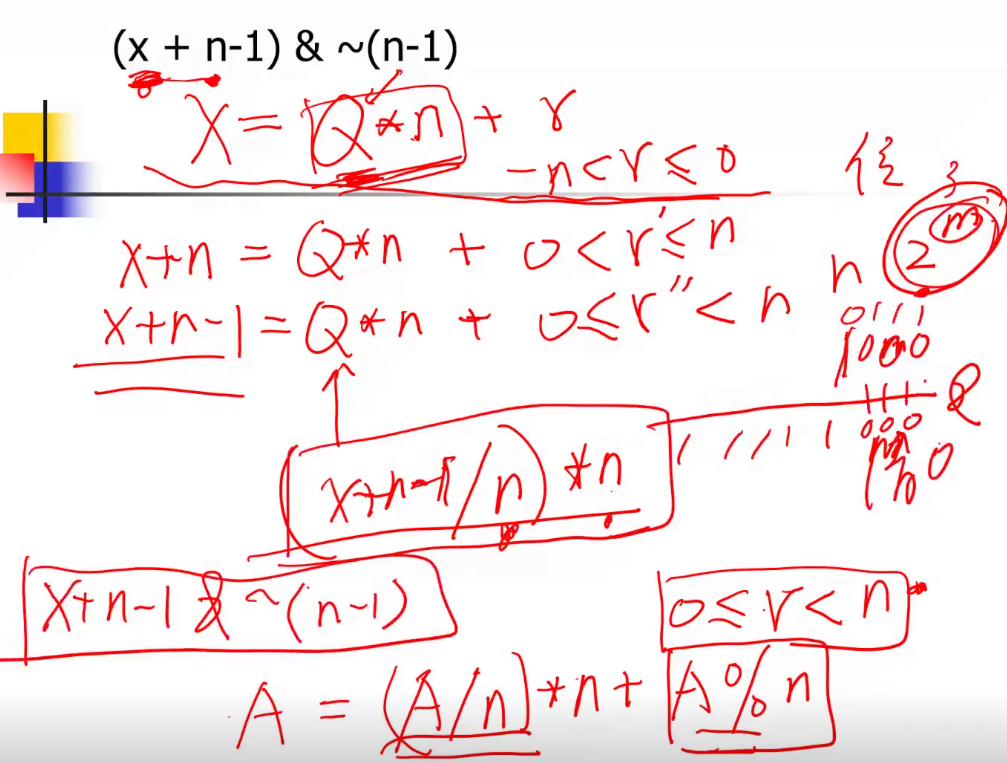 (x + n-1) & ~(n-1)
X = Q*n + r
-n<r≤0
x+n = Q*n + 0<r'≤n
x+n-1 = Q*n + 0≤r''<n
n 2^m
0111
1000
111
000
(x+n-1/n)*n
x+n-1 & ~(n-1)
0≤r<n
A = (A/n)*n + A%n